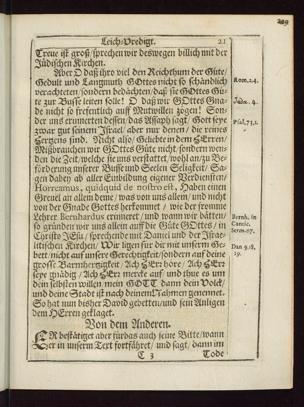 229
Leich-Predigt. 21
Treue ist groß/ sprechen wir deswegen billich mit der
Jüdischen Kirchen.
Aber O daß ihro viel den Reichthum der Güte/
Gedult und Langmuth GOttes nicht so schändlich
verachteten/ sondern bedächten/ daß sie GOttes Gü-
te zur Busse leiten solle! O daß wir GOttes Gna-
de nicht so freventlich auff Mutwillen zögen! Son-
der uns erinnerten dessen das Assaph sagt/ Gott seye
zwar gut seinem Israel/ aber nur denen/ die reines
Hertzens sind. Nicht also/ Geliebte in dem HErren/
Mißbrauchen wir GOttes Güte nicht/ sondern wen-
den die Zeit/ welche sie uns verstattet/ wohl an/ zu Be-
förderung unserer Busse und Seelen Seligkeit/ Sa-
gen dabey ab aller Einbildung eigener Verdiensten/
Horremus, quidquid de nostro est, Haben einen
Greuel an allem deme/ was von uns allein/ und nicht
von der Gnade Gottes herkommet/ wie der fromme
Lehrer Bernhardus erinneret/ und wann wir bätten/
so gründen wir uns allein auff die Güte GOttes/ in
Christo JEsu/ sprechende mit Daniel und der Israe-
litischen Kirchen/ Wir ligen für dir mit unserm Ge-
bett/ nicht auf unsere Gerechtigkeit/ sondern auf deine
grosse Barmhertzigkeit/ Ach HErr höre/ Ach HErr
seye gnädig/ Ach HErr mercke auf/ und thue es um
dein selbsten willen mein GOTT dann dein Volck/
und deine Stadt ist nach deinem Nahmen genennet.
So hat nun bisher David gebetten/ und sein Anligen
dem HErren geklaget.
Von dem Anderen.
ER bestätiget aber fürbas auch seine Bitte/ wann
er in unserm Text fortfähret/ und sagt/ dann im
C 3 Tode
Rom. 2.4.
Judæ. 4.
Psal. 73.1.
Bernh. in
Cantic.
Dan 9.18,
19.